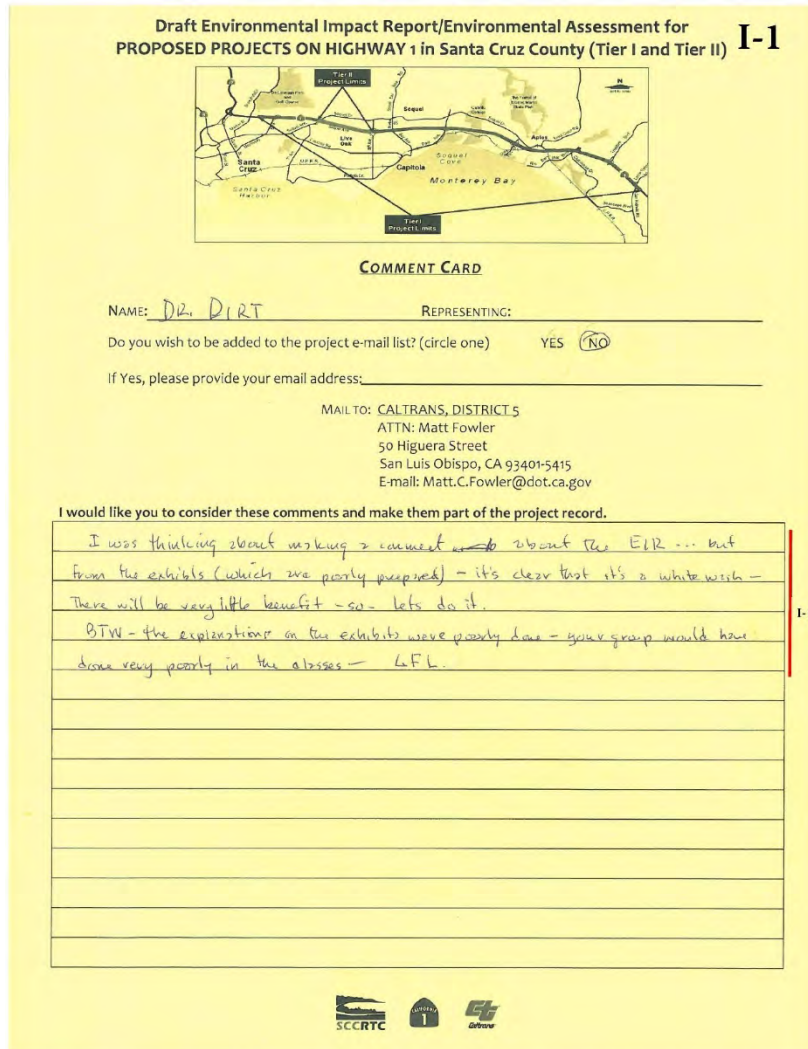 Draft Environmental Impact Report/Environmental Assessment for
PROPOSED PROJECTS ON HIGHWAY 1 in Santa Cruz County (Tier I and Tier II)
I-1
Tier II
Project Limits
N
Soquel
Live
Oak
Aptos
Santa
Cruz
Capitola
Soquel
Cove
Monterey Bay
Santa Cruz
Harbor
Tier I
Project Limits
COMMENT CARD
NAME: DR. DIRT REPRESENTING:
Do you wish to be added to the project e-mail list? (circle one) YES NO
If Yes, please provide your email address:
MAIL TO: CALTRANS, DISTRICT 5
ATTN: Matt Fowler
50 Higuera Street
San Luis Obispo, CA 93401-5415
E-mail: Matt.C.Fowler@dot.ca.gov
I would like you to consider these comments and make them part of the project record.
I was thinking about making a comment about the EIR ... but
from the exhibts (which are poorly prepared) - it's clear that it's a white wash -
There will be very little benefit - so - lets do it.
I-
BTW - the explanations on the exhibits were poorly done - your group would have
done very poorly in the classes - LFL.
SCCRTC
CALIFORNIA
1
Caltrans